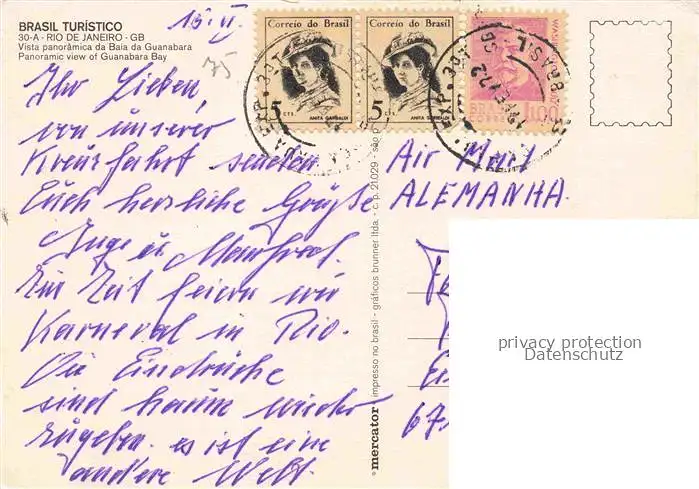 BRASIL TURÍSTICO
30-A - RIO DE JANEIRO - GB
Vista panorâmica da Baia da Guanabara
Panoramic view of Guanabara Bay
75
Correio do Brasil
5 CTS.
ANITA GARIBALDI
Correio do Brasil
5 CTS.
ANITA GARIBALDI
BRASIL
CORREIO
1,00
BRASIL
Ihr Lieben,
von unserer
Kreuzfahrt senden
Euch herzliche Grüße
Inge u. Manfred.
Zur Zeit feiern wir
Karneval in Rio.
Die Eindrücke
sind kaum wieder
zugeben. es ist eine
andere Welt.
mercator impresso no brasil - gráficos brunner ltda. - c. p. 21.029 - são p
Air Mail
ALEMANHA
67
privacy protection
Datenschutz